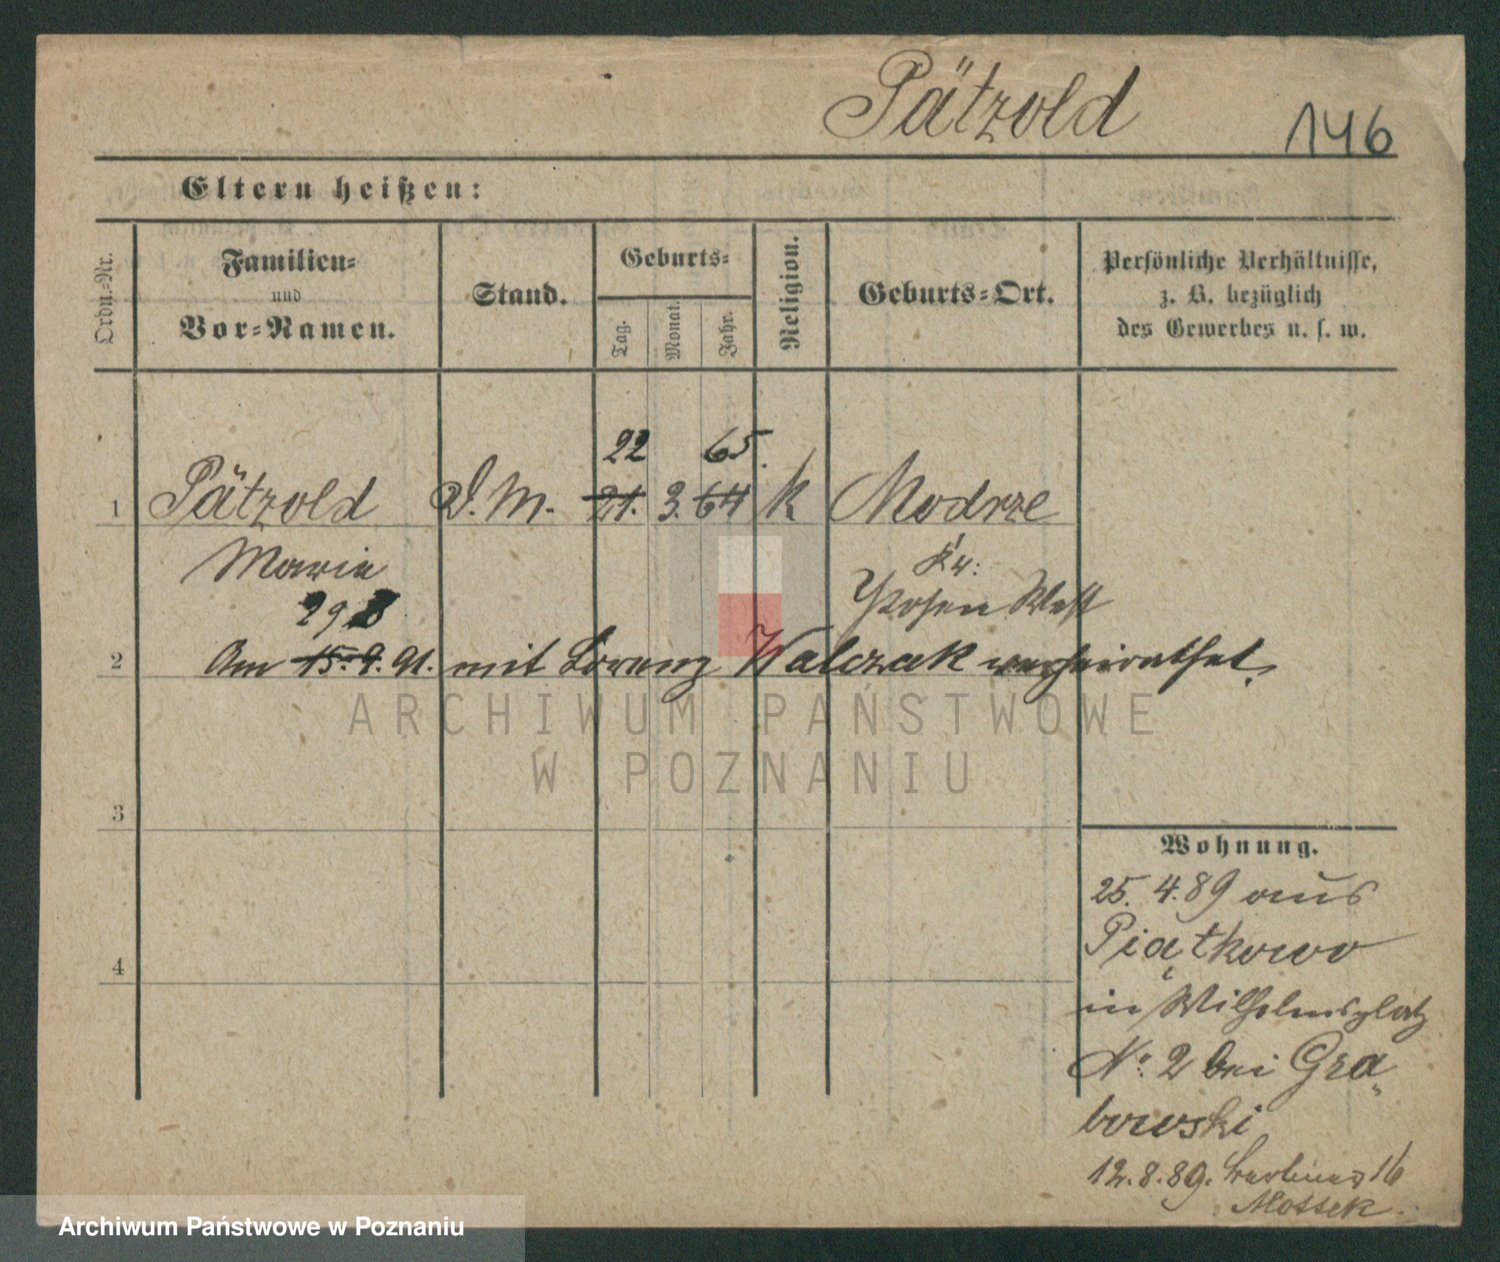 Pätzold
146
Eltern heißen:
Ordn.-Nr.
Familien-
und
Vor-Namen.
Stand.
Geburts-
Tag.
Monat.
Jahr.
Religion.
Geburts-Ort.
Persönliche Verhältnisse,
z. B. bezüglich
des Gewerbes u. s. w.
22 65.
1 Pätzold D. M. 21. 3. 64 k Modrze
Marie Kr:
29 8 Posen West
2 Am 15. 9. 91. mit Lorenz Walczak verheirathet.
ARCHIWUM PAŃSTWOWE
W POZNANIU
3
Wohnung.
25. 4. 89 aus
Piątkowo
4
in Wilhelmsplatz
No. 2 bei Gra-
bowski
12. 8. 89. 16
Mossek.
Archiwum Państwowe w Poznaniu